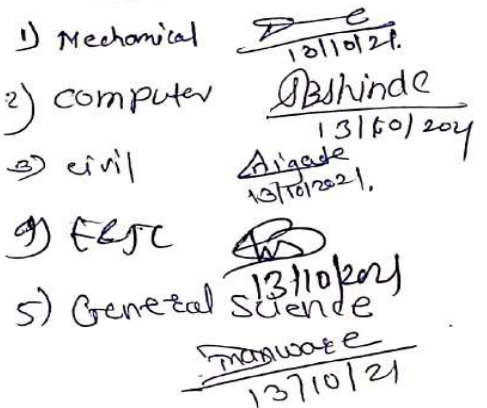 1) Mechanical
13/10/21.
2) computer SBShinde
13/10/2021
3) civil Aigade
13/10/2021.
4) E&TC
13/10/2021
5) General Science
manware
13/10/21